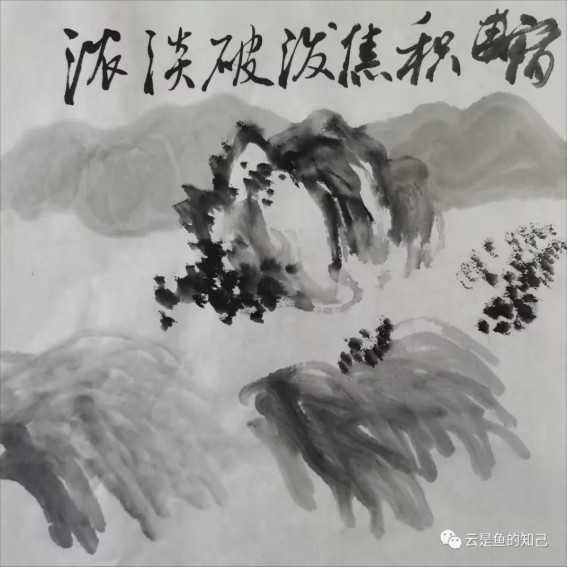 浓淡破泼焦积宿
云是鱼的知己